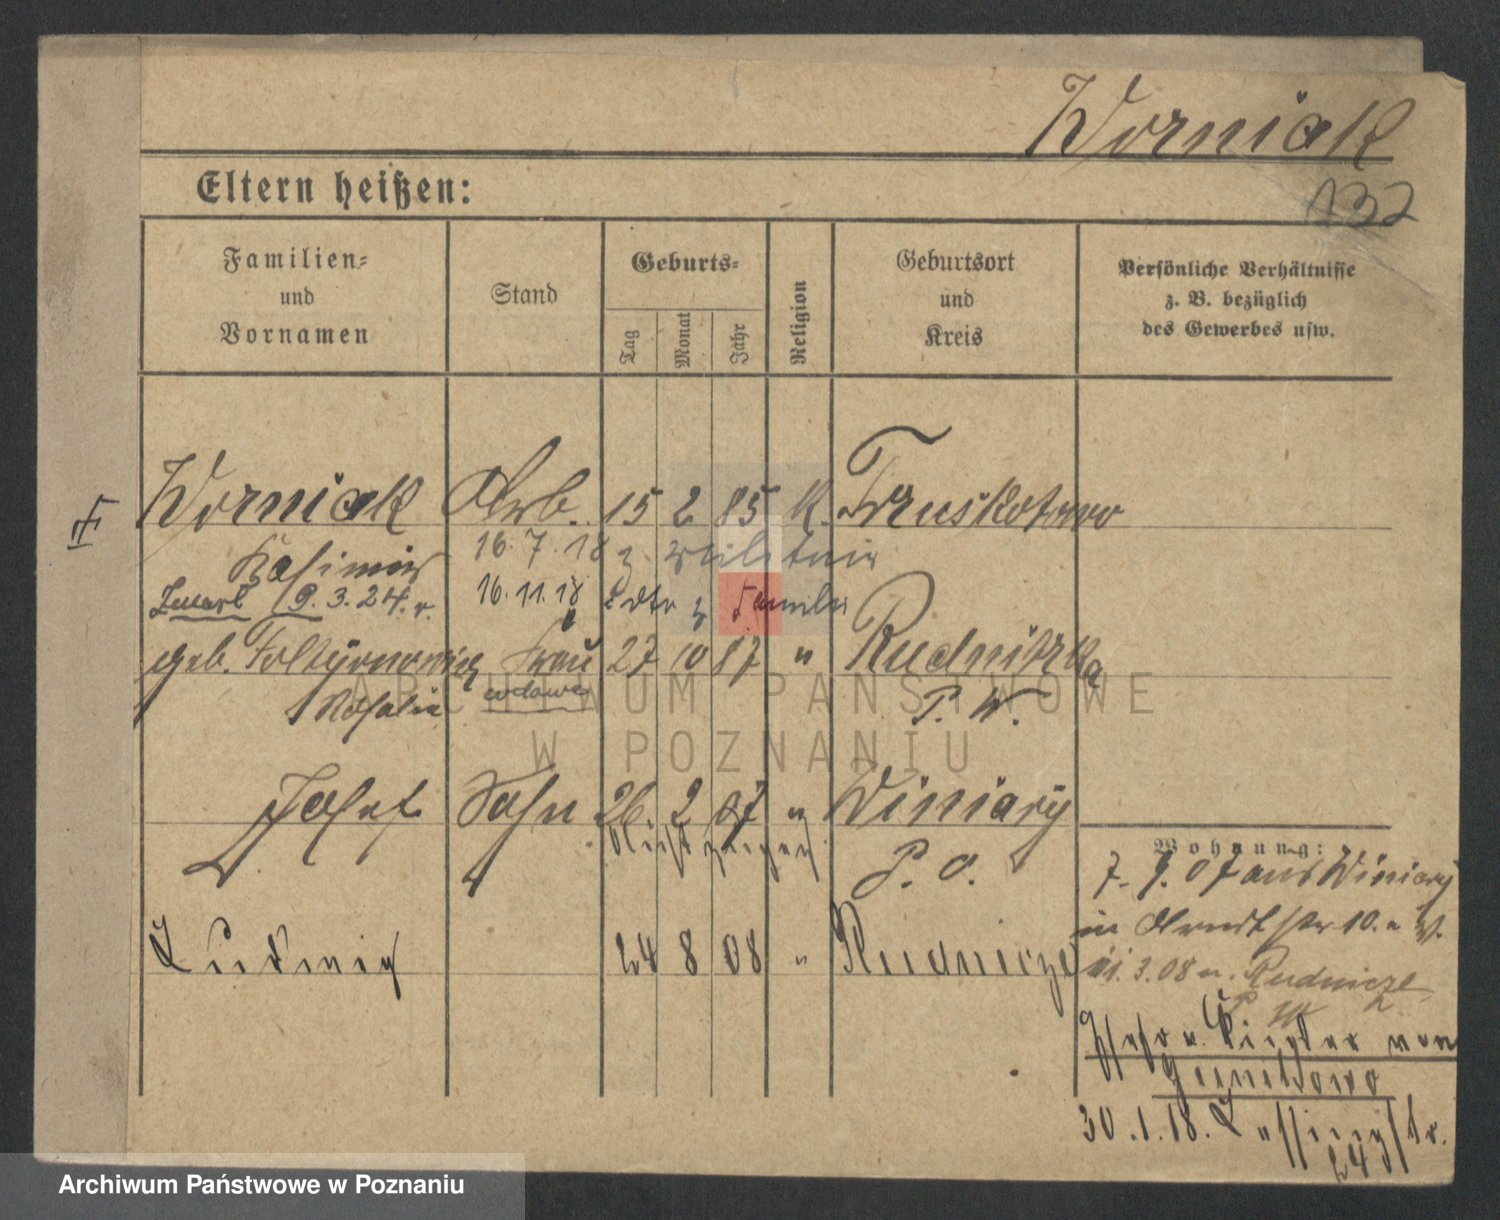 Worniak
132
Eltern heißen:
Familien= und Vornamen
Stand
Geburts=
Tag
Monat
Jahr
Religion
Geburtsort und Kreis
Persönliche Verhältnisse z. B. bezüglich des Gewerbes usw.
Worniak Arb. 15 2 85 K. Truskotowo
Kasimir 16.7.18 z. Militair
Zmarł 9.3.24. r. 16.11.18 z Familie
geb. Foltynowicz Frau 27 10 87 " Rudnitzka
Rosalie wdowa P. W.
Josef Sohn 26. 2 07 " Winiary
Nicht zugezog. P. O.
Ludwig 24 8 08 " Rudnicze
Wohnung:
7. 9. 07 aus Winiary
in Arndtstr 10. a W.
11.3.08 n. Rudnicze
P W
Ehefr u. Kinder von
30.1.18. Lessingstr.
24
ARCHIWUM PAŃSTWOWE
W POZNANIU
Archiwum Państwowe w Poznaniu